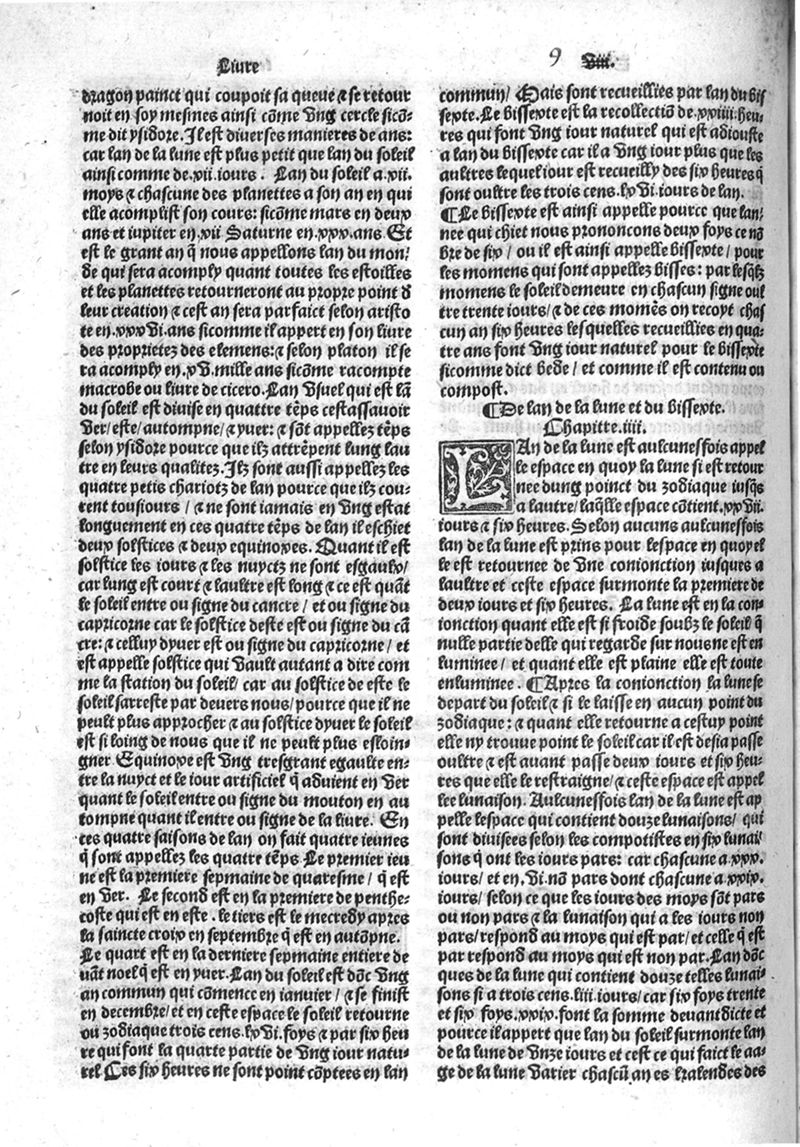 Liure
9 Viii.
dragon painct qui coupoit sa queue ⁊ se retour
noit en soy mesmes ainsi cōme vng cercle sicō⸗
me dit ysidore. Il est diuerses manieres de ans:
car lan de la lune est plus petit que lan du soleil
ainsi comme de .xii. iours. Lan du soleil a .xii.
moys ⁊ chascune des planettes a son an en qui
elle acomplist son cours: sicōme mars en deux
ans et iupiter en .xii Saturne en .xxx. ans. Et
est le grant an q̄ nous appellons lan du mon/
de qui sera acomply quant toutes les estoilles
et les planettes retourneront au propre point d
leur creation ⁊ cest an sera parfaict selon aristo
te en .xxxvi. ans sicomme il appert en son liure
des proprietez des elemens: ⁊ selon platon il se
ra acomply en .xv. mille ans sicōme racompte
macrobe ou liure de cicero. Lan vsuel qui est lā
du soleil est diuise en quattre tēps cestassauoir
Ver/ este/ automne/ ⁊ yuer: ⁊ sōt appellez tēps
selon ysidore pource que ilz attrēpent lung lau
tre en leurs qualitez. Ilz sont aussi appellez les
quatre petis chariotz de lan pource que ilz cou⸗
rent tousiours / ⁊ ne sont iamais en vng estat
longuement en ces quatre tēps de lan il eschiet
deux solstices ⁊ deux equinoxes. Quant il est
solstice les iours ⁊ les nuyctz ne sont esgaulx/
car lung est court ⁊ laultre est long ⁊ ce est quāt
le soleil entre ou signe du cancre / et ou signe du
capricorne car le solstice deste est ou signe du cā
cre: ⁊ celluy dyuer est ou signe du capricorne / et
est appelle solstice qui vault autant a dire com
me la station du soleil/ car au solstice de este le
soleil sarreste par deuers nous/ pource que il ne
peult plus approcher ⁊ au solstice dyuer le soleil
est si loing de nous que il ne peult plus esloin⸗
gner. Equinoxe est vng tresgrant egaulte en⸗
tre la nuyct et le iour artificiel q̄ aduient en ver
quant le soleil entre ou signe du mouton en au
tompne quant il entre ou signe de la liure. En
ces quatre saisons de lan on fait quatre ieunes
q̄ sont appellez les quatre tēps Le premier ieu
ne est la premiere sepmaine de quaresme / q̄ est
en ver. Le second est en la premiere de penthe⸗
coste qui est en este. le tiers est le mecredy apres
la saincte croix en septembre q̄ est en autōpne.
Le quart est en la derniere sepmaine entiere de
uāt noel q̄ est en yuer. Lan du soleil est dōc vng
an commun qui cōmence en ianuier / ⁊ se finist
en decembre/ et en ceste espace le soleil retourne
ou zodiaque trois cens .lxvi. foys ⁊ par six heu
re qui font la quarte partie de vng iour natu⸗
rel Ces six heures ne sont point cōptees en lan
commun/ Mais sont recueillies par lan du bis
sexte. Le bissexte est la recollectiō de .xxiiii. heu⸗
res qui font vng iour naturel qui est adiouste
a lan du bissexte car il a vng iour plus que les
aultres lequel iour est recueilly des six heures q̄
sont oultre les trois cens .lxvi. iours de lan.
¶ Le bissexte est ainsi appelle pource que lan⸗
nee qui chiet nous prononcons deux foys ce nō
bre de six / ou il est ainsi appelle bissexte / pour
les momens qui sont appellez bisses: par lesq̄lz
momens le soleil demeure en chascun signe oul
tre trente iours/ ⁊ de ces momēs on recoyt chas
cun an six heures lesquelles recueillies en qua⸗
tre ans font vng iour naturel pour le bissexte
sicomme dict bede / et comme il est contenu ou
compost.
¶ De lan de la lune et du bissexte.
Chapitre .iiii.
LAn de la lune est aulcunesfois appel
le espace en quoy la lune si est retour
nee dung poinct du zodiaque iusq̄s
a lautre/ laq̄lle espace cōtient .xxvii.
iours ⁊ six heures. Selon aucuns aulcunesfois
lan de la lune est prins pour lespace en quoy el
le est retournee de vne conionction iusques a
laultre et ceste espace surmonte la premiere de
deux iours et six heures. La lune est en la con⸗
ionction quant elle est si froide soubz le soleil q̄
nulle partie delle qui regarde sur nous ne est en
luminee / et quant elle est plaine elle est toute
enluminee. ¶ Apres la conionction la lune se
depart du soleil ⁊ si le laisse en aucun point du
zodiaque: ⁊ quant elle retourne a cestuy point
elle ny trouue point le soleil car il est desia passe
oultre ⁊ est auant passe deux iours et six heu⸗
res que elle le restraigne/ ⁊ ceste espace est appel
lee lunaison. Aulcunesfois lan de la lune est ap
pelle lespace qui contient douze lunaisons/ qui
sont diuisees selon les compotistes en six lunai
sons q̄ ont les iours pars: car chascune a .xxx.
iours/ et en .vi. nō pars dont chascune a .xxix.
iours/ selon ce que les iours des moys sōt pars
ou non pars ⁊ la lunaison qui a les iours non
pars/ respond au moys qui est par/ et celle q̄ est
par respond au moys qui est non par. Lan dōc
ques de la lune qui contient douze telles lunai⸗
sons si a trois cens .liii. iours/ car six foys trente
et six foys .xxix. font la somme deuandicte et
pource il appert que lan du soleil surmonte lan
de la lune de vnze iours et cest ce qui faict le aa⸗
ge de la lune varier chascū an es kalendes des